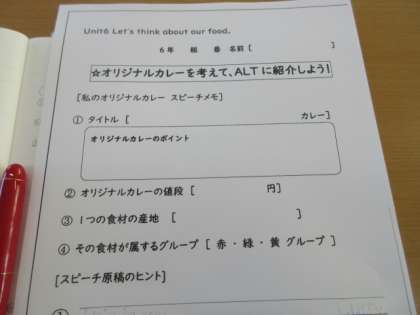 Unit6 Let's think about our food.
6年 組 番 名前 [ ]
☆オリジナルカレーを考えて、ALTに紹介しよう!
[私のオリジナルカレー スピーチメモ]
① タイトル [ カレー]
オリジナルカレーのポイント
② オリジナルカレーの値段 [ 円]
③ 1つの食材の産地 [ ]
④ その食材が属するグループ [ 赤・緑・黄 グループ ]
[スピーチ原稿のヒント]
①